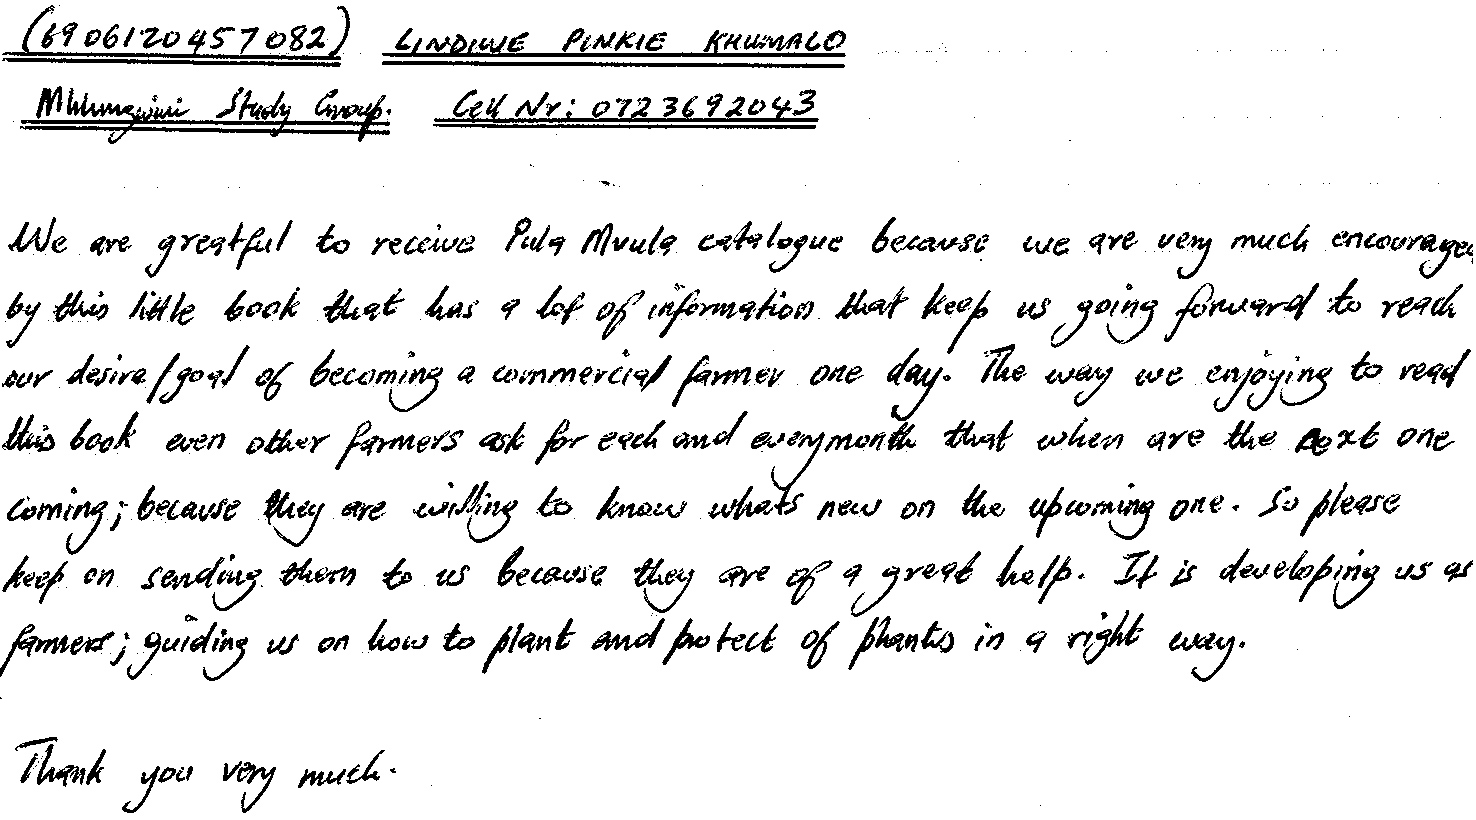 (6906120457082) LINDIWE PINKIE KHUMALO
Study Group. Cell Nr: 0723692043
We are greatful to receive Pula Mvula catalogue because we are very much encouraged
by this little book that has a lot of information that keep us going forward to reach
our desire/goal of becoming a commercial farmer one day. The way we enjoying to read
this book even other farmers ask for each and everymonth that when are the next one
coming; because they are willing to know whats new on the upcoming one. So please
keep on sending them to us because they are of a great help. It is developing us as
farmers; guiding us on how to plant and protect of phants in a right way.
Thank you very much.